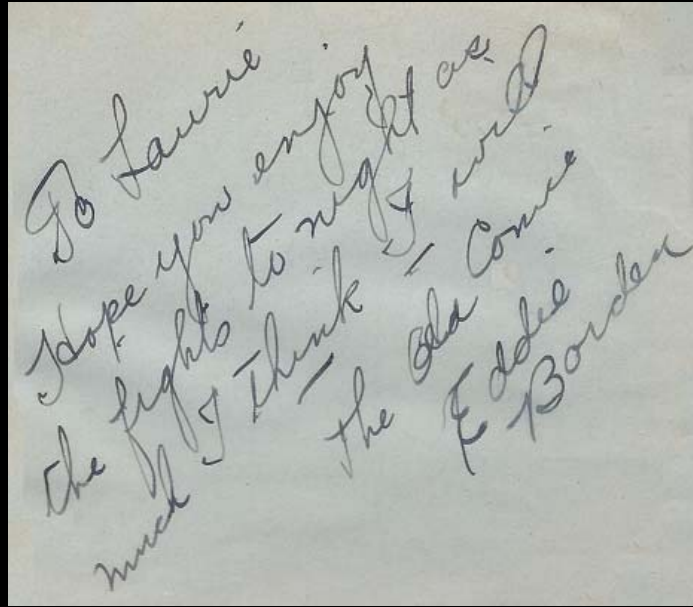 To Laurie
Hope you enjoy
the fights to night as
much I think I will
the Old Comic
Eddie
Borden